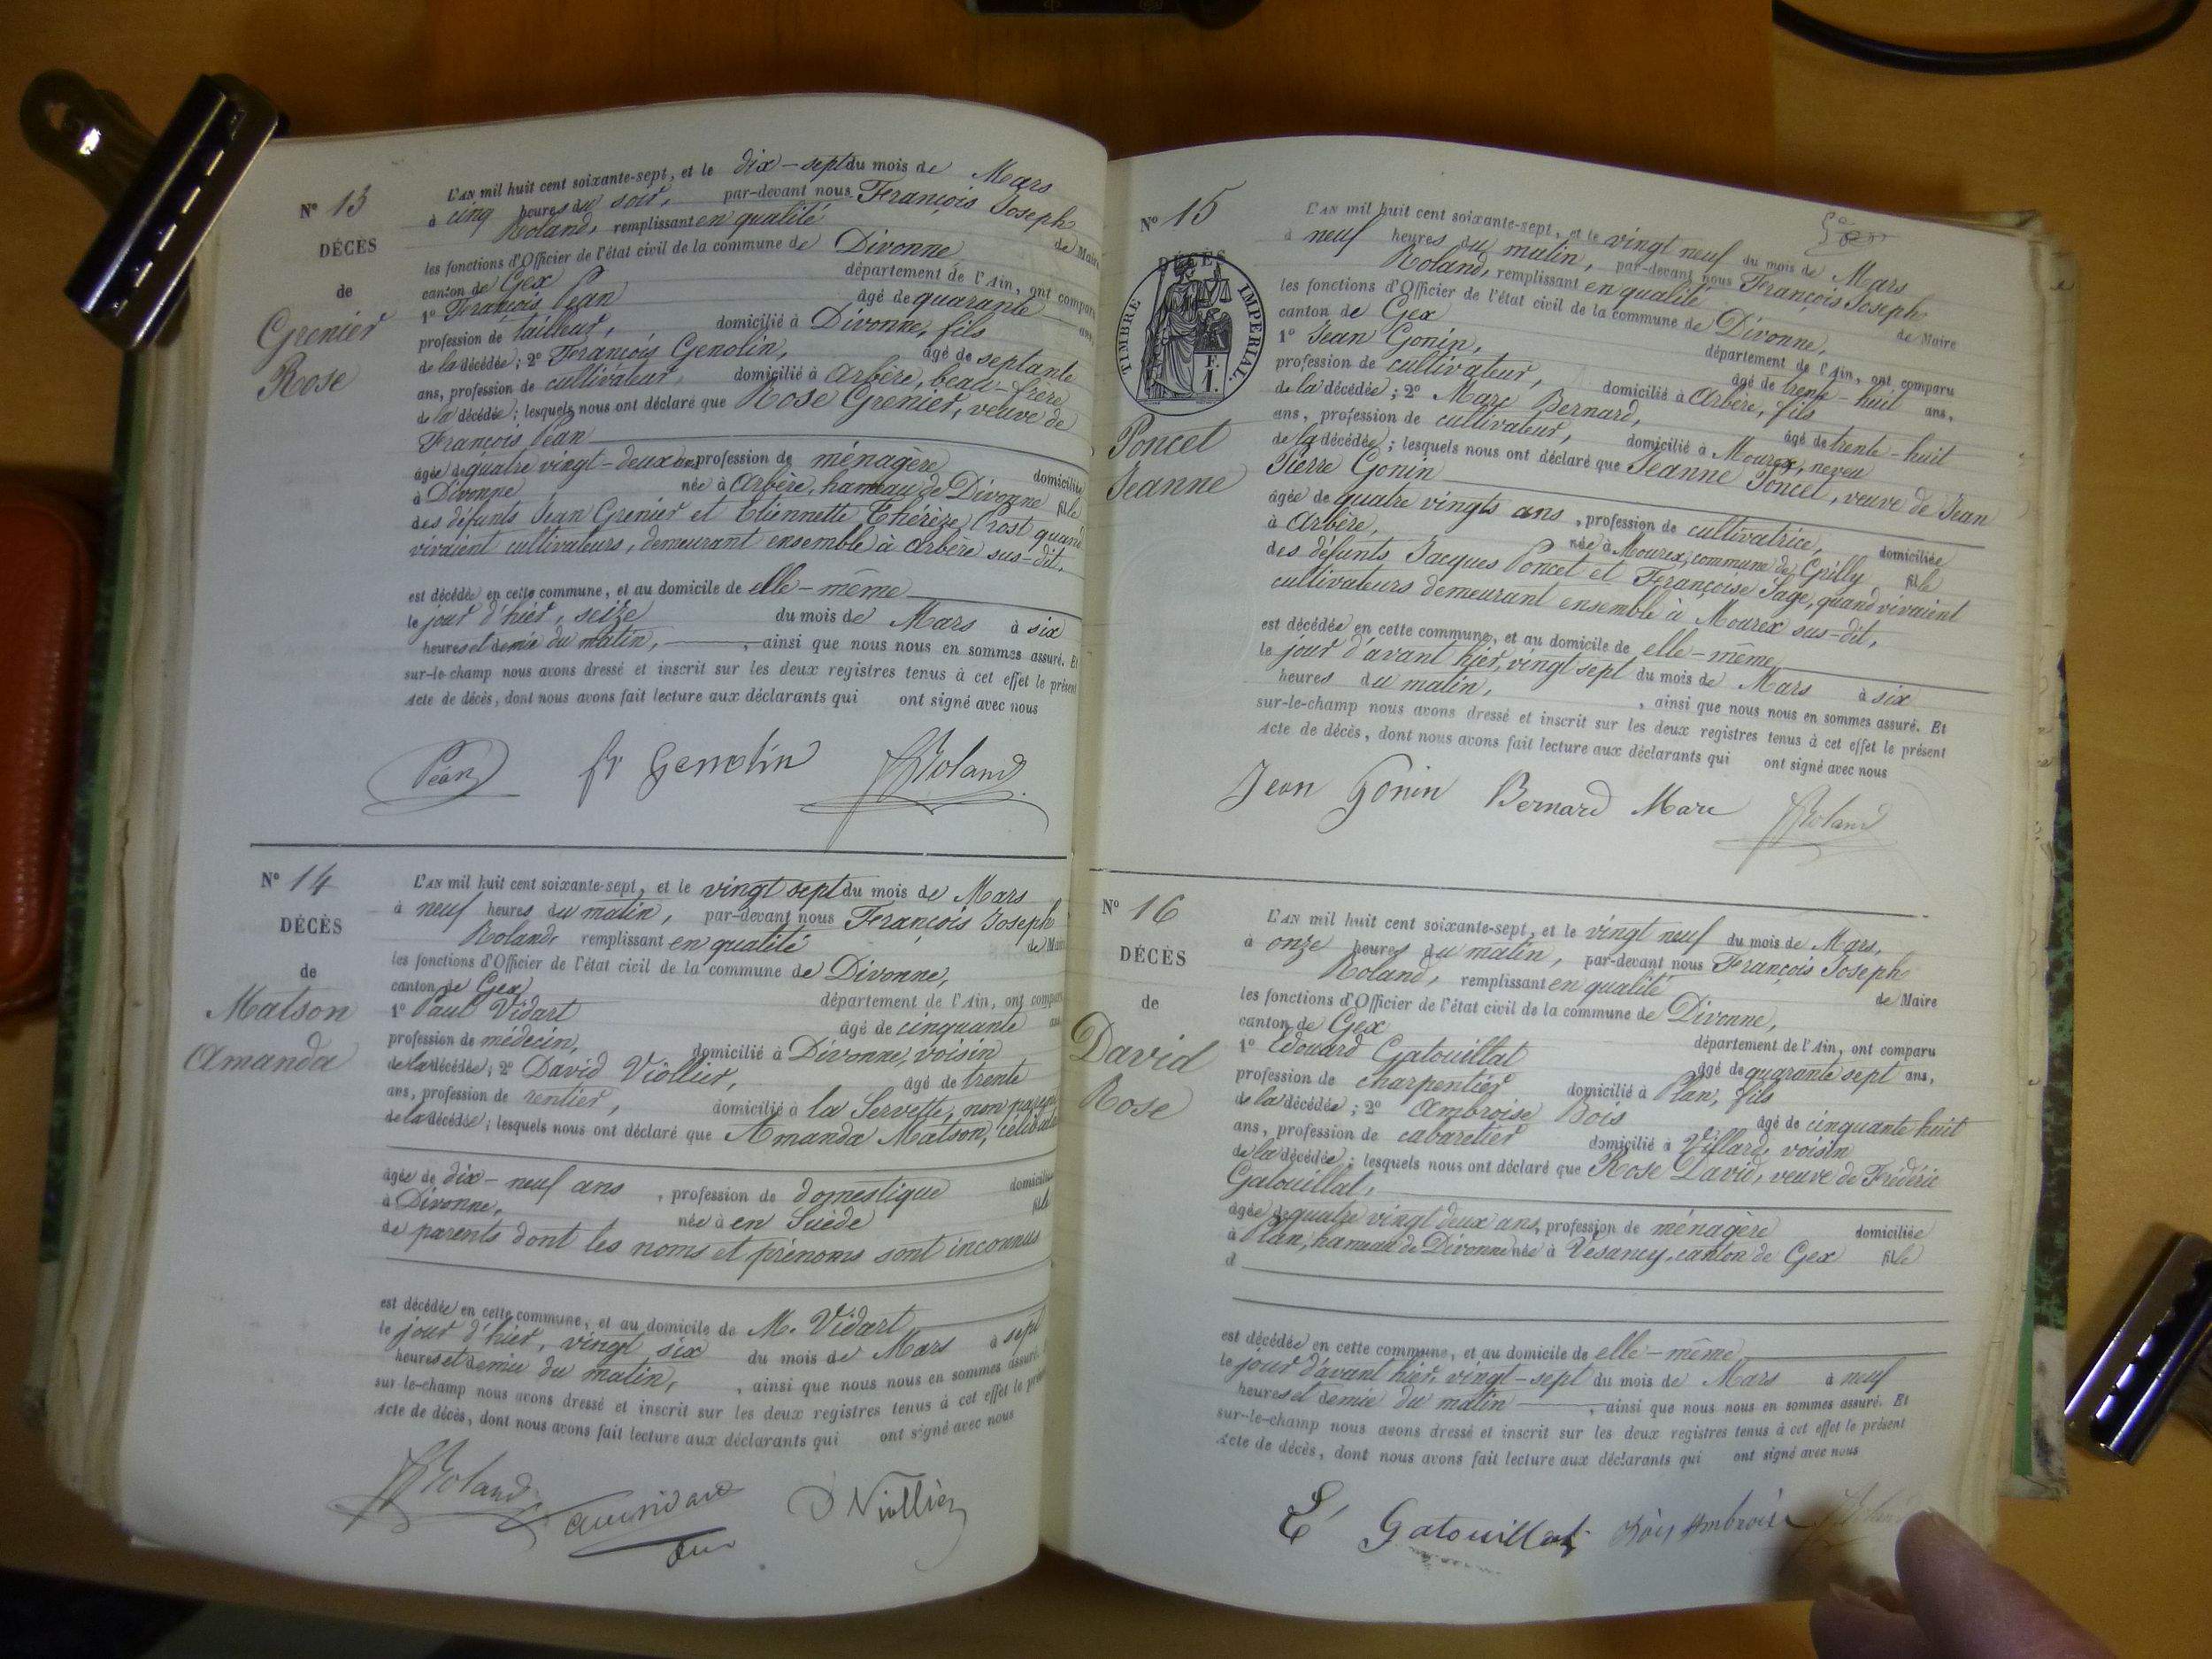 N° 13
DÉCÈS
de
Grenier
Rose
L'AN mil huit cent soixante-sept, et le dix-sept du mois de Mars
à cinq heures du soir, par-devant nous François Joseph
Roland, remplissant en qualité de Maire
les fonctions d'Officier de l'état civil de la commune de Divonne,
canton de Gex département de l'Ain, ont comparu
1° François Péan âgé de quarante ans,
profession de tailleur, domicilié à Divonne, fils
de la décédée; 2° François Genolin, âgé de septante
ans, profession de cultivateur, domicilié à Arbère, beau-frère
de la décédée; lesquels nous ont déclaré que Rose Grenier, veuve de
François Péan
âgée de quatre vingt-deux ans, profession de ménagère domiciliée
à Divonne née à Arbère, hameau de Divonne fille
des défunts Jean Grenier et Etiennette Thérèze Prost quand
vivaient cultivateurs, demeurant ensemble à Arbère sus-dit.
est décédée en cette commune, et au domicile de elle-même
le jour d'hier, seize du mois de Mars à six
heures et demie du matin, , ainsi que nous nous en sommes assuré. Et
sur-le-champ nous avons dressé et inscrit sur les deux registres tenus à cet effet le présent
Acte de décès, dont nous avons fait lecture aux déclarants qui ont signé avec nous
Péan fr Genolin JRoland
N° 14
DÉCÈS
de
Matson
Amanda
L'AN mil huit cent soixante-sept, et le vingt sept du mois de Mars
à neuf heures du matin, par-devant nous François Joseph
Roland, remplissant en qualité de Maire
les fonctions d'Officier de l'état civil de la commune de Divonne,
canton de Gex département de l'Ain, ont comparu
1° Paul Vidart âgé de cinquante ans
profession de médecin, domicilié à Divonne, voisin
de la décédée; 2° David Viollier, âgé de trente
ans, profession de rentier, domicilié à la Servette, non parent
de la décédée; lesquels nous ont déclaré que Amanda Matson, célibataire
âgée de dix-neuf ans, profession de domestique domiciliée
à Divonne, née à en Suède fille
de parents dont les noms et prénoms sont inconnus
est décédée en cette commune, et au domicile de M. Vidart
le jour d'hier, vingt six du mois de Mars à sept
heures et demie du matin, , ainsi que nous nous en sommes assuré.
sur-le-champ nous avons dressé et inscrit sur les deux registres tenus à cet effet le présent
Acte de décès, dont nous avons fait lecture aux déclarants qui ont signé avec nous
JRoland D Viollier
N° 15
DÉCÈS
TIMBRE IMPÉRIAL
F.
1.
Poncet
Jeanne
L'AN mil huit cent soixante-sept, et le vingt neuf du mois de Mars
à neuf heures du matin, par-devant nous François Joseph
Roland, remplissant en qualité de Maire
les fonctions d'Officier de l'état civil de la commune de Divonne,
canton de Gex département de l'Ain, ont comparu
1° Jean Gonin, âgé de trente-huit ans,
profession de cultivateur, domicilié à Arbère, fils
de la décédée; 2° Marc Bernard, âgé de trente-huit
ans, profession de cultivateur, domicilié à Mourex, neveu
de la décédée; lesquels nous ont déclaré que Jeanne Poncet, veuve de Jean
Pierre Gonin
âgée de quatre vingts ans, profession de cultivatrice, domiciliée
à Arbère, née à Mourex, commune de Grilly fille
des défunts Jacques Poncet et Françoise Sage, quand vivaient
cultivateurs demeurant ensemble à Mourex sus-dit,
est décédée en cette commune, et au domicile de elle-même
le jour d'avant hier, vingt sept du mois de Mars à six
heures du matin, , ainsi que nous nous en sommes assuré. Et
sur-le-champ nous avons dressé et inscrit sur les deux registres tenus à cet effet le présent
Acte de décès, dont nous avons fait lecture aux déclarants qui ont signé avec nous
Jean Gonin Bernard Marc JRoland
N° 16
DÉCÈS
de
David
Rose
L'AN mil huit cent soixante-sept, et le vingt neuf du mois de Mars,
à onze heures du matin, par-devant nous François Joseph
Roland, remplissant en qualité de Maire
les fonctions d'Officier de l'état civil de la commune de Divonne,
canton de Gex département de l'Ain, ont comparu
1° Edouard Gatouillat âgé de quarante sept ans,
profession de charpentier domicilié à Plan, fils
de la décédée; 2° Ambroise Bois âgé de cinquante huit
ans, profession de cabaretier domicilié à Villard, voisin
de la décédée; lesquels nous ont déclaré que Rose David, veuve de Frédéric
Gatouillat,
âgée de quatre vingt deux ans, profession de ménagère domiciliée
à Plan, hameau de Divonne née à Vesancy, canton de Gex fille
d
est décédée en cette commune, et au domicile de elle-même
le jour d'avant hier, vingt-sept du mois de Mars à neuf
heures et demie du matin , ainsi que nous nous en sommes assuré. Et
sur-le-champ nous avons dressé et inscrit sur les deux registres tenus à cet effet le présent
Acte de décès, dont nous avons fait lecture aux déclarants qui ont signé avec nous
E Gatouillat Bois Ambroise JRoland